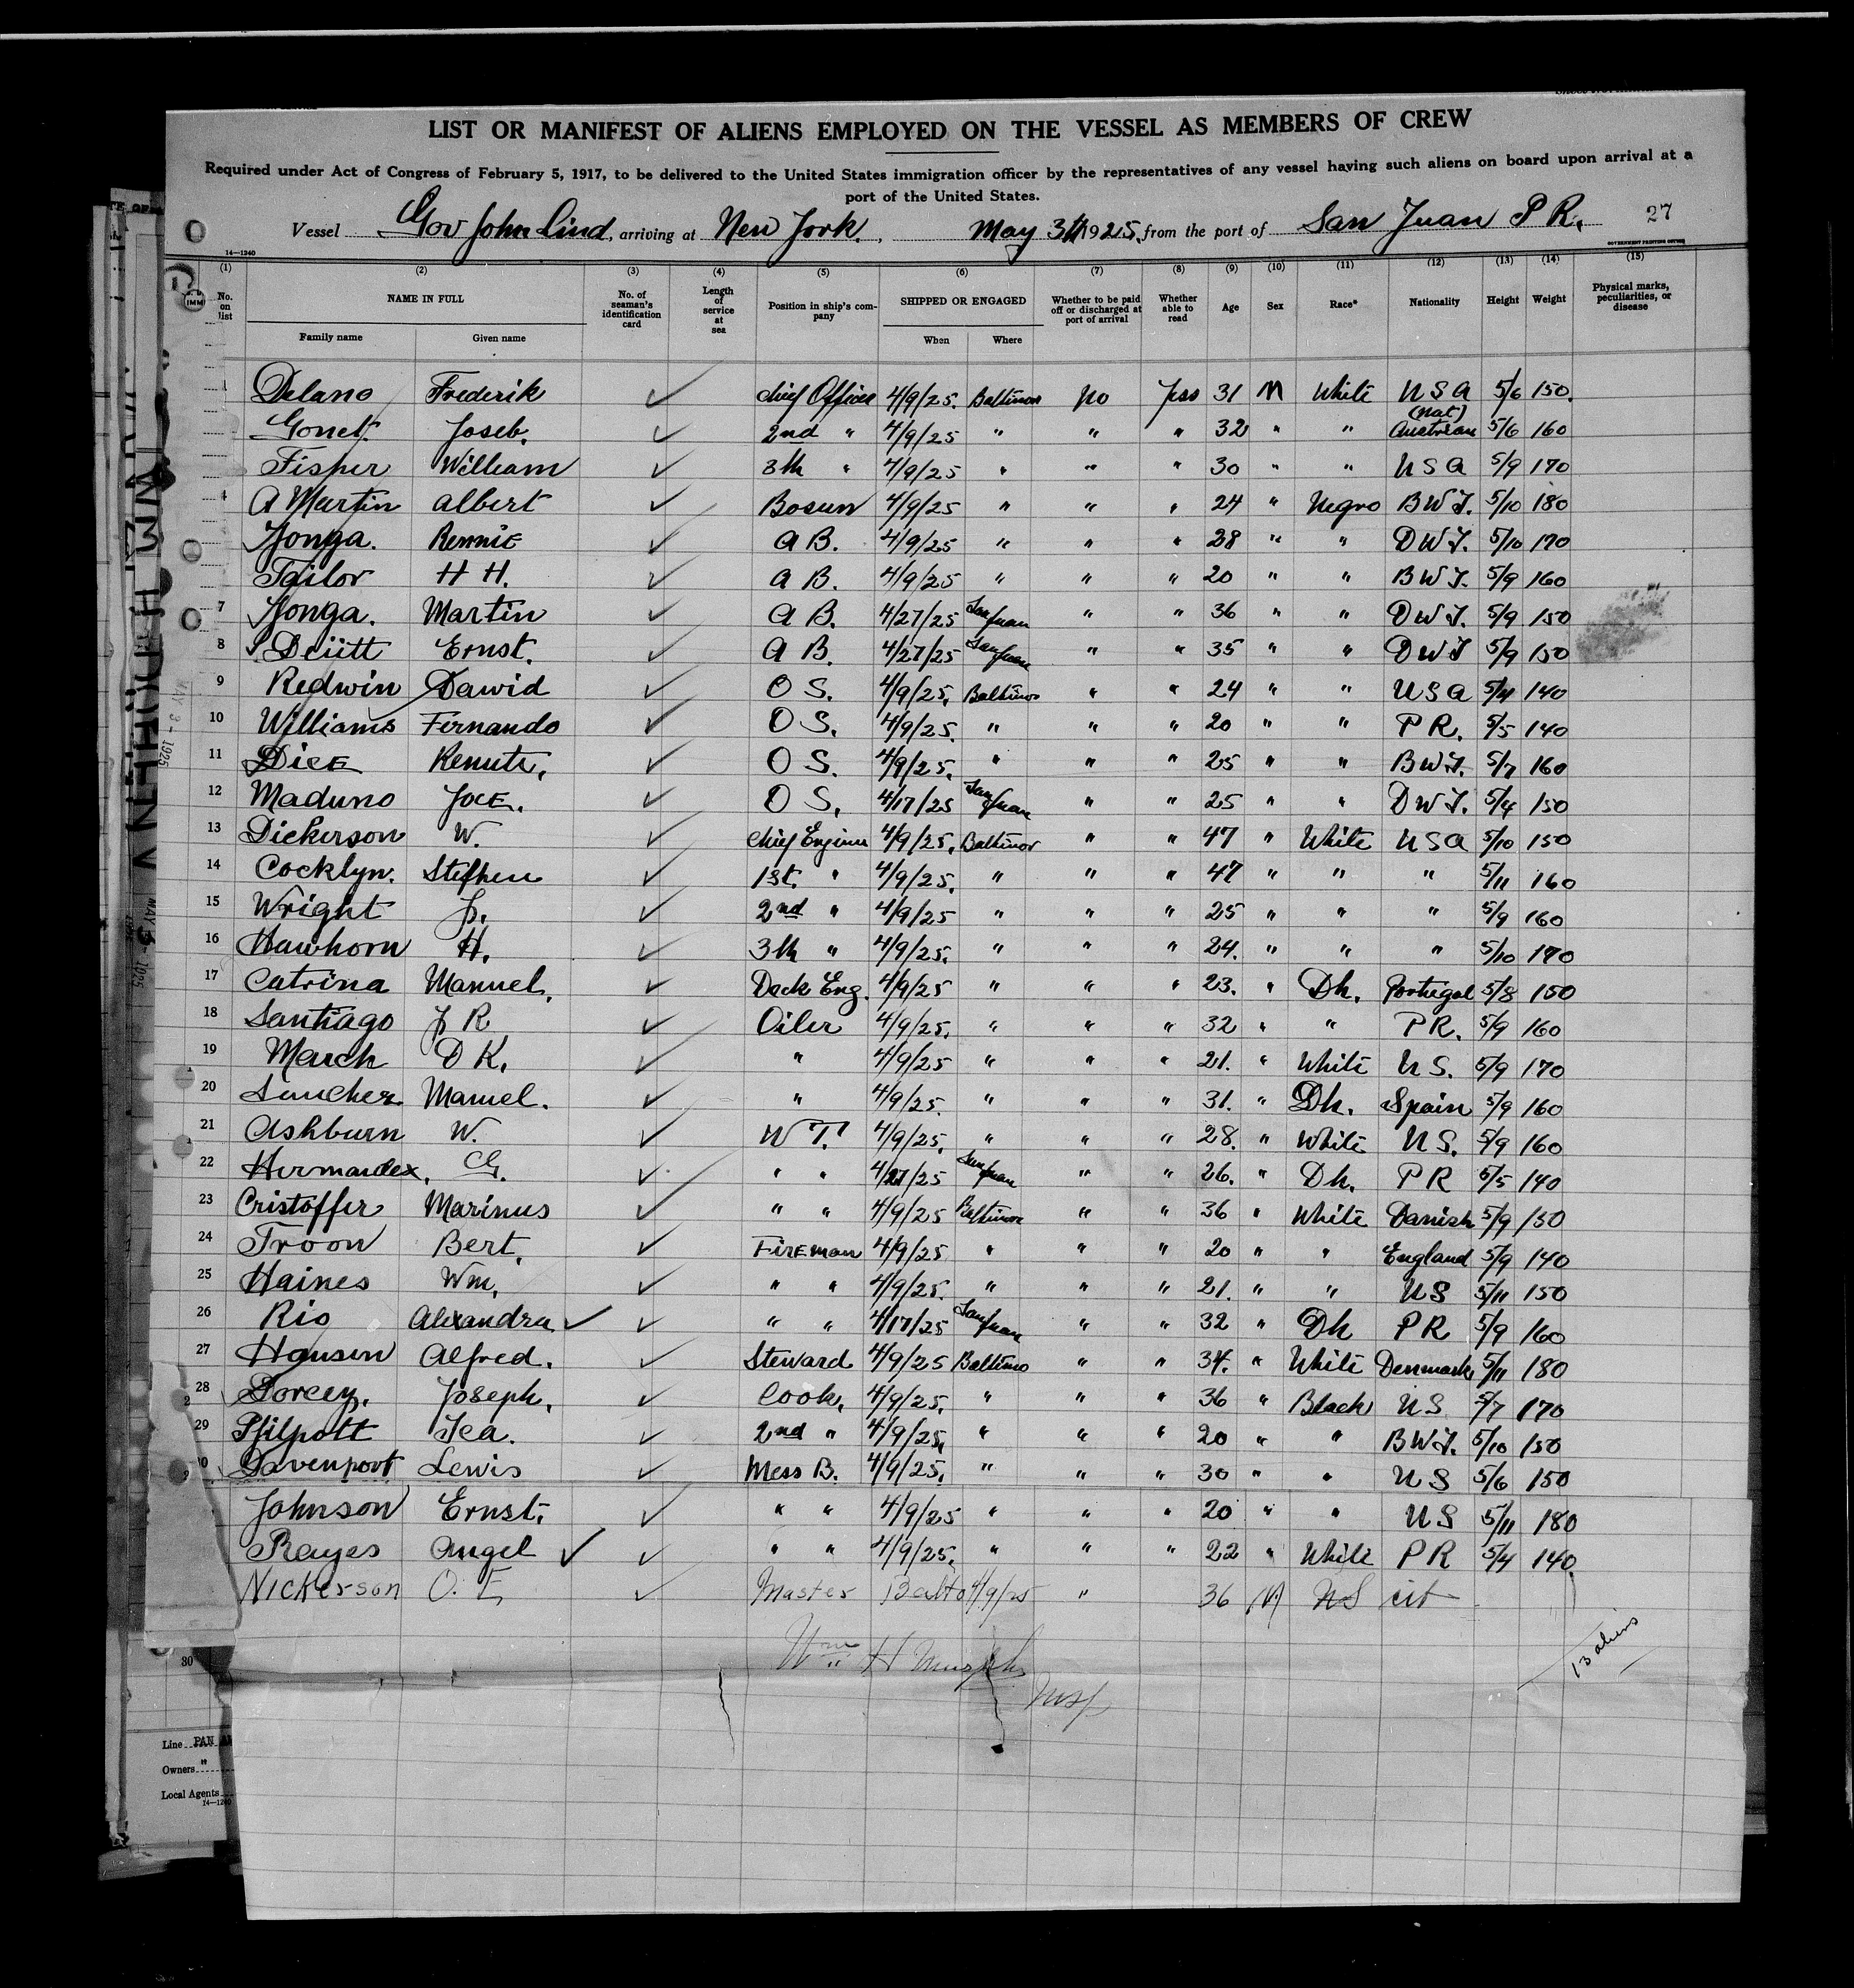 LIST OR MANIFEST OF ALIENS EMPLOYED ON THE VESSEL AS MEMBERS OF CREW
Required under Act of Congress of February 5, 1917, to be delivered to the United States immigration officer by the representatives of any vessel having such aliens on board upon arrival at a
port of the United States.
Vessel Gov John Lind, arriving at New York., May 3th 1925, from the port of San Juan P R. 27
14—1240 GOVERNMENT PRINTING OFFICE
(1) (2) (3) (4) (5) (6) (7) (8) (9) (10) (11) (12) (13) (14) (15)
No. on list NAME IN FULL No. of seaman's identification card Length of service at sea Position in ship's company SHIPPED OR ENGAGED Whether to be paid off or discharged at port of arrival Whether able to read Age Sex Race* Nationality Height Weight Physical marks, peculiarities, or disease
Family name Given name When Where
Delano Frederik ✓ Chief Officer 4/9/25. Baltimore No Jess 31 M White USA 5/6 150.
Gonet. Joseb. ✓ 2nd " 4/9/25 " " " 32 " " (Nat) Austrian 5/6 160
Fisher William ✓ 3th " 4/9/25 " " " 30 " " USA 5/9 170
4 A Martin Albert ✓ Bosun 4/9/25 " " " 24 " Negro BWI. 5/10 180
Jonga. Rennie ✓ A B. 4/9/25 " " " 28 " " DWI. 5/10 170
Tailor H H. ✓ A B. 4/9/25 " " " 20 " " BWI. 5/9 160
7 Jonga. Martin ✓ A B. 4/27/25 San Juan " " 36 " " DWI. 5/9 150
8 Deütt Ernst. ✓ A B. 4/27/25 San Juan " " 35 " " DWI 5/9 150
9 Redwin Dawid ✓ O S. 4/9/25. Baltimor " " 24 " " USA 5/4 140
10 Williams Fernando ✓ O S. 4/9/25. " " " 20 " " P R. 5/5 140
11 Dice Kenute, ✓ O S. 4/9/25. " " " 25 " " BWI. 5/7 160
12 Maduno Joce. ✓ O S. 4/17/25 San Juan " " 25 " " DWI. 5/4 150
13 Dickerson W. ✓ Chief Engineer 4/9/25. Baltimor " " 47 " White USA 5/10 150
14 Cocklyn. Stephen ✓ 1st. " 4/9/25. " " " 47 " " " 5/11 160
15 Wright J. ✓ 2nd " 4/9/25 " " " 25 " " " 5/9 160
16 Hawhorn H. ✓ 3th " 4/9/25. " " " 24. " " " 5/10 170
17 Catrina Manuel. ✓ Deck Eng. 4/9/25 " " " 23. " Dk. Portugal 5/8 150
18 Santiago J R ✓ Oiler 4/9/25. " " " 32 " " P R. 5/9 160
19 March D K. ✓ " 4/9/25 " " " 21. " White U S. 5/9 170
20 Sancher Manuel. ✓ " 4/9/25. " " " 31. " Dk. Spain 5/9 160
21 Ashburn W. ✓ W T. 4/9/25. " " " 28. " White U S. 5/9 160
22 Hermandex, G. ✓ " " 4/27/25 San Juan " " 26. " Dk. P R 5/5 140
23 Cristoffer Marinus ✓ " " 4/9/25 Baltimore " " 36 " White Danish 5/9 150
24 Troon Bert. ✓ Fireman 4/9/25 " " " 20 " " England 5/9 140
25 Haines Wm. ✓ " " 4/9/25. " " " 21. " " US 5/11 150
26 Rio Alexandra ✓ ✓ " " 4/17/25 San Juan " " 32 " Dk P R 5/9 160
27 Hansen Alfred. ✓ Steward 4/9/25 Baltimo " " 34. " White Denmark 5/11 180
28 Dorcey. Joseph. ✓ Cook. 4/9/25. " " " 36 " Black U S 5/7 170
29 Pfilpott Tea. ✓ 2nd " 4/9/25. " " " 20 " " BWI. 5/10 150
30 Davenport Lewis ✓ Mess B. 4/9/25. " " " 30 " " U S 5/6 150
Johnson Ernst. ✓ " " 4/9/25 " " " 20 " " US 5/11 180
Rayes Angel ✓ ✓ " " 4/9/25. " " " 22 " White P R 5/4 140.
Nickerson O. E ✓ Master Balto 4/9/25 " 36 M US cit
Wm H Murphy
Insp
13 aliens
30
Line PAN
Owners "
Local Agents
14—1240
MAY 3 - 1925
MAY 3 - 1925